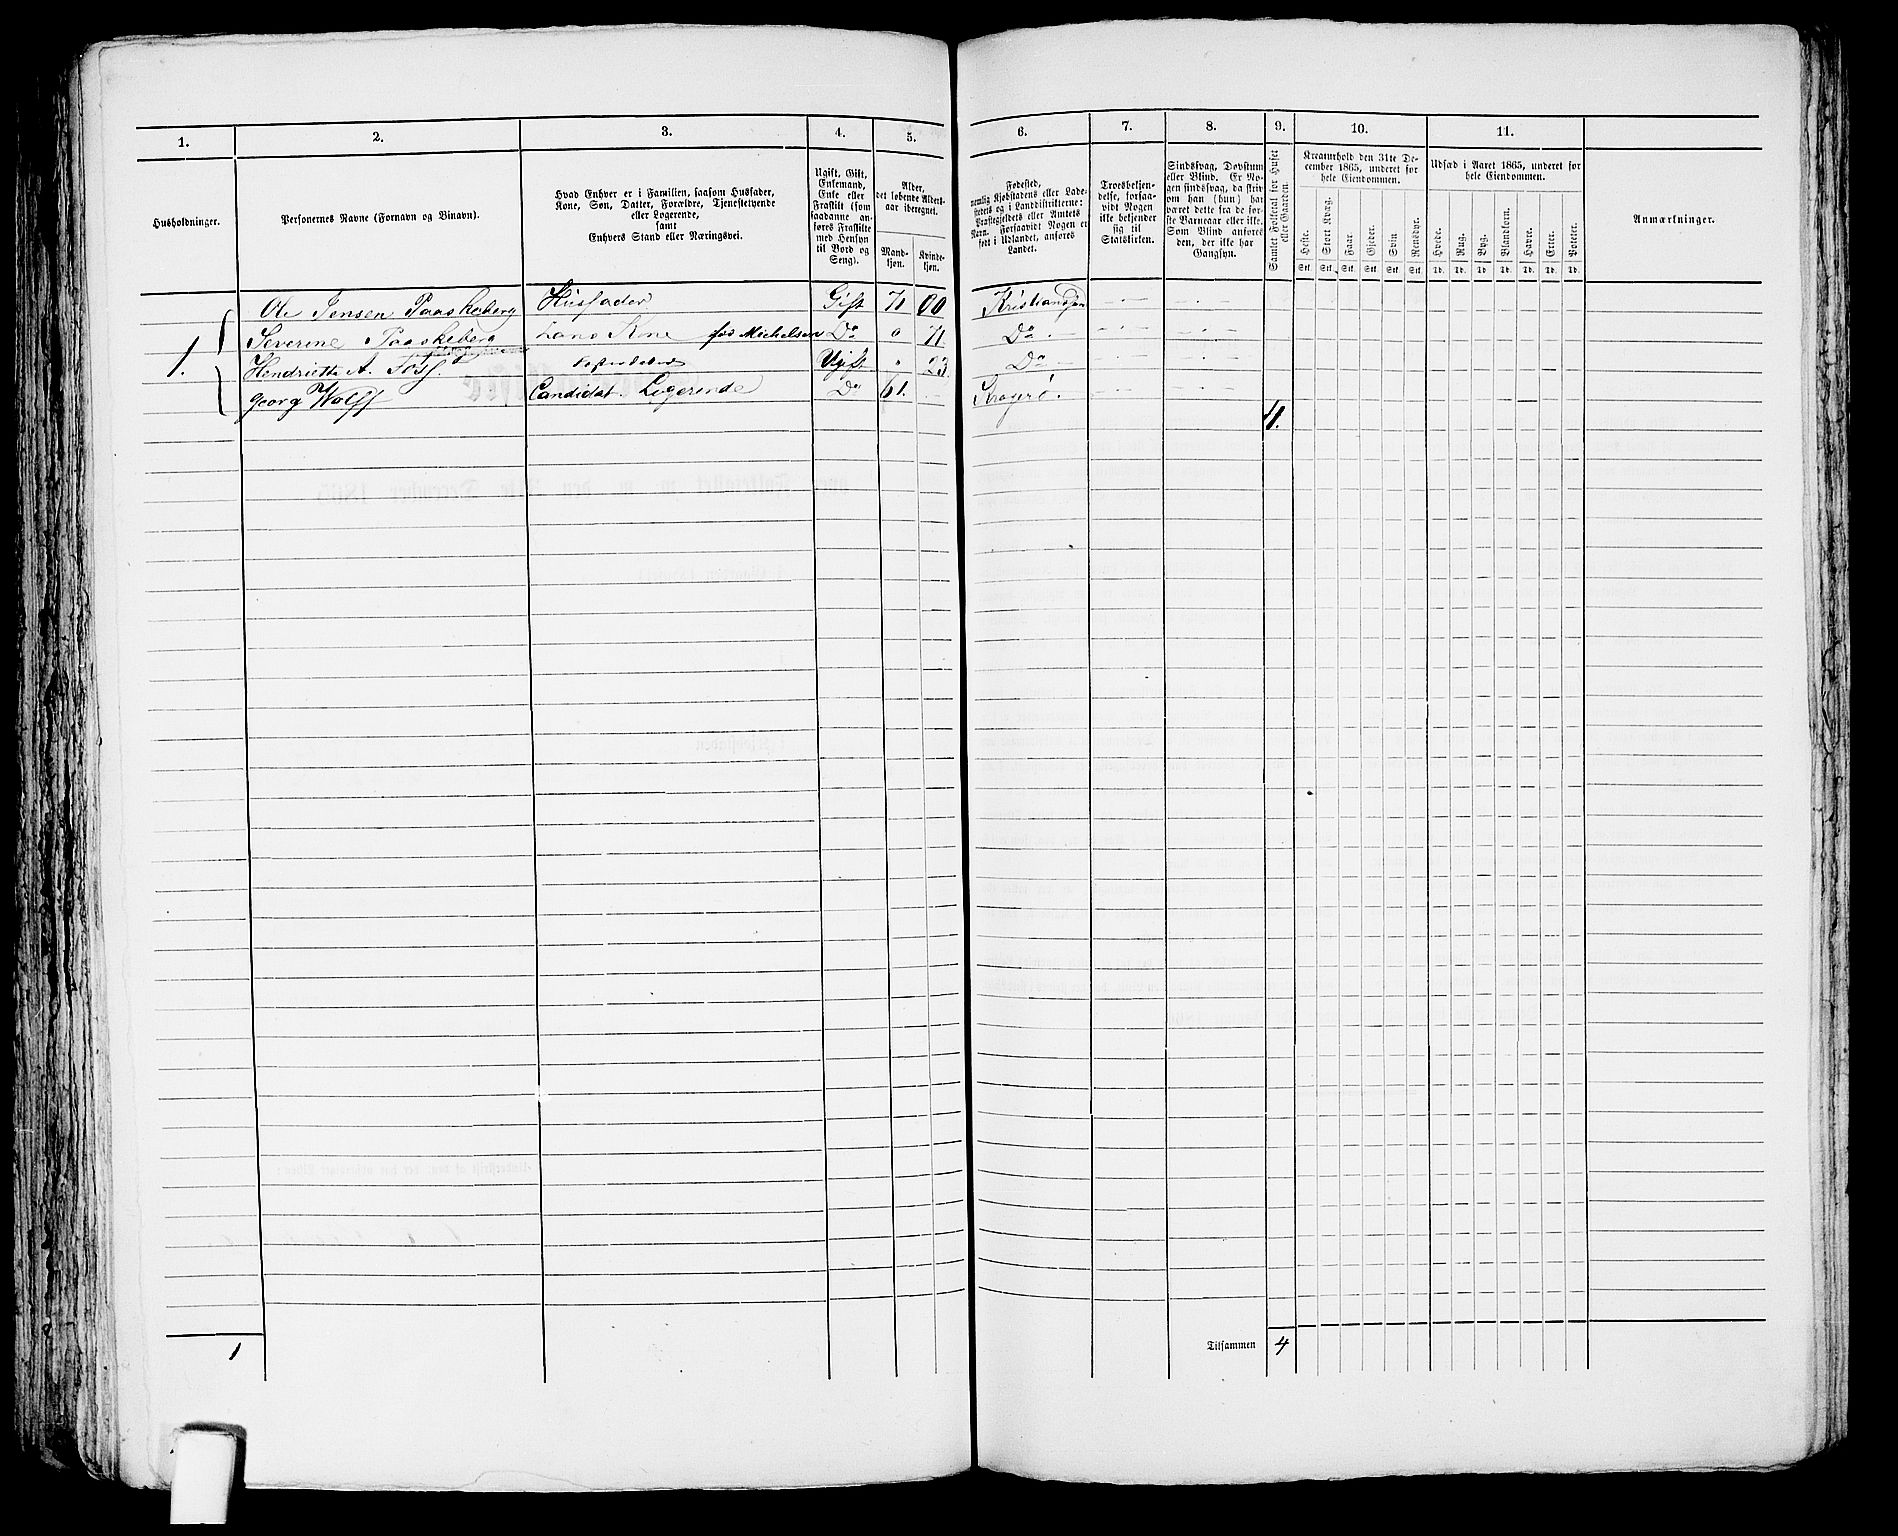 1. 2. 3. 4. 5. 6. 7. 8. 9. 10. 11.
Husholdninger.
Personernes Navne (Fornavn og Binavn).
Hvad Enhver er i Familien, saasom Husfader,
Kone, Søn, Datter, Forældre, Tjenestetyende
eller Logerende,
samt
Enhvers Stand eller Næringsvei.
Ugift, Gift,
Enkemand,
Enke eller
Fraskilt (som
saadanne an-
føres Fraskilte
med Hensyn
til Bord og
Seng).
Alder,
det løbende Alders-
aar iberegnet.
Mand-
kjøn.
Kvinde-
kjøn.
Fødested,
nemlig Kjøbstadens eller Lade-
stedets og i Landdistrikterne:
Præstegjeldets eller Amtets
Navn. Forsaavidt Nogen er
født i Udlandet, anføres
Landet.
Troesbekjen-
delse, forsaa-
vidt Nogen
ikke bekjender
sig til
Statskirken.
Sindssvag, Døvstum
eller Blind. Er No-
gen sindssvag, da skriv
om han (hun) har
været dette fra de før-
ste Barneaar eller ikke.
Som Blind anføres
den, der ikke har
Gangsyn.
Samlet Folketal for Huset
eller Gaarden.
Kreaturhold den 31te De-
cember 1865, underet for
hele Eiendommen.
Heste. Stort Kvæg. Faar. Gjeder. Svin. Rensdyr.
Stk. Stk. Stk. Stk. Stk. Stk.
Udsæd i Aaret 1865, underet for
hele Eiendommen.
Hvede. Rug. Byg. Blandkorn. Havre. Erter. Poteter.
Td. Td. Td. Td. Td. Td. Td.
Anmærkninger.
Ole Jensen Paaskeberg Husfader Gift 71 00 Kristiansen
1. Severine Paaskeberg Hans Kone fød Michelsen Do 0 71 Do
Henriette A. Foss. Ugift " 23 Do
Georg Wolff Candidat. Logerende Do 61. Kragerø.
4.
1
Tilsammen 4